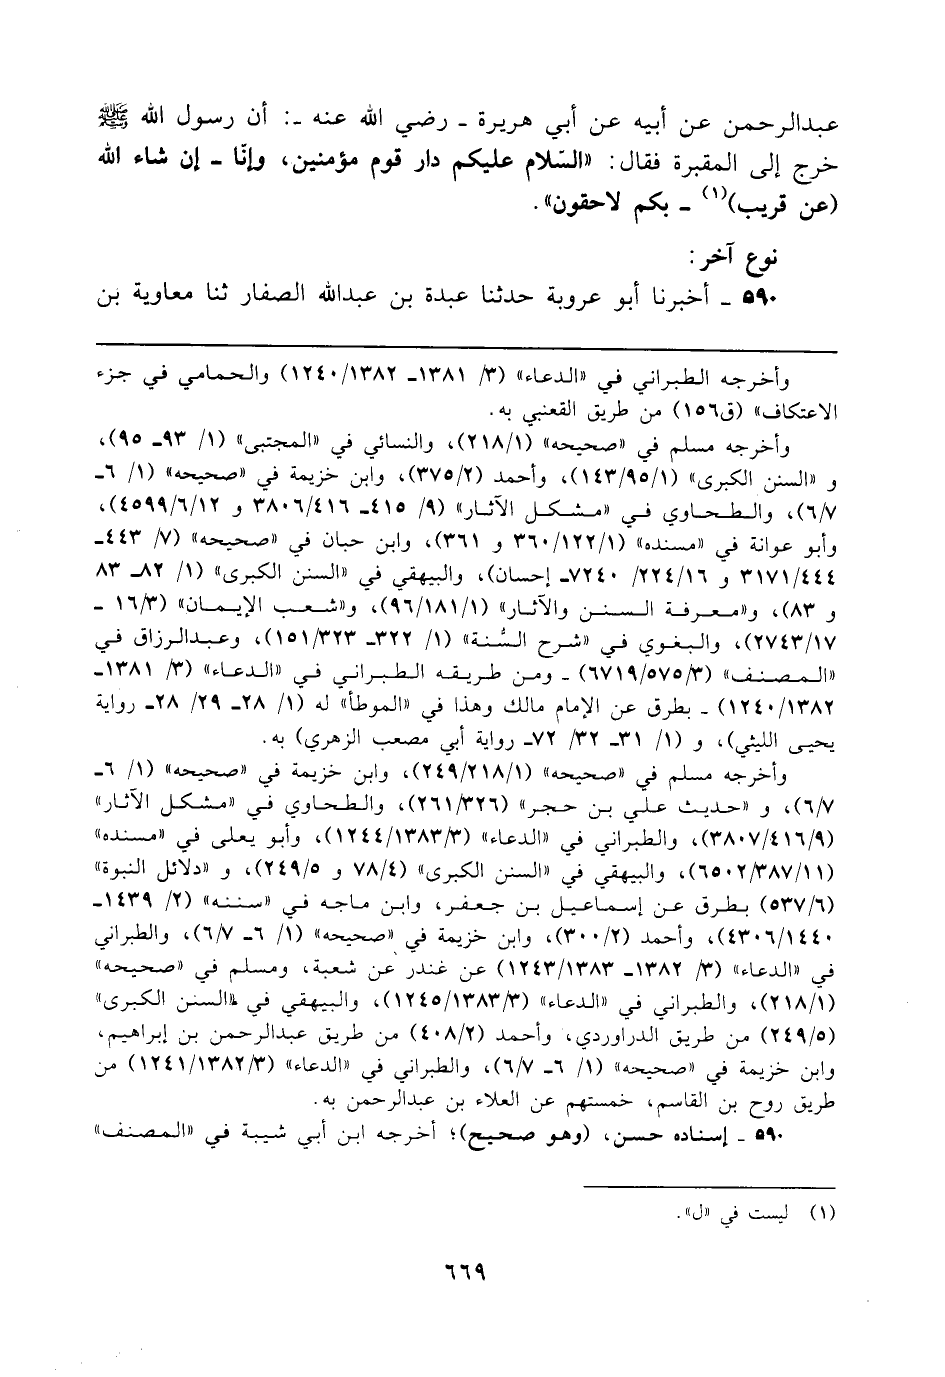 عبدالرحمن عن أبيه عن أبي هريرة ـ رضي الله عنه ـ: أن رسول الله ﷺ
خرج إلى المقبرة فقال: «السّلام عليكم دار قوم مؤمنين، وإنّا ـ إن شاء الله
(عن قريب)(١) ـ بكم لاحقون».
نوع آخر:
٥٩٠ ـ أخبرنا أبو عروبة حدثنا عبدة بن عبدالله الصفار ثنا معاوية بن
وأخرجه الطبراني في «الدعاء» (٣/ ١٣٨١ـ ١٢٤٠/١٣٨٢) والحمامي في جزء
الاعتكاف» (ق١٥٦) من طريق القعنبي به.
وأخرجه مسلم في «صحيحه» (٢١٨/١)، والنسائي في «المجتبى» (١/ ٩٣ـ ٩٥)،
و «السنن الكبرى» (١٤٣/٩٥/١)، وأحمد (٣٧٥/٢)، وابن خزيمة في «صحيحه» (١/ ٦ـ
٦/٧)، والطحاوي في «مشكل الآثار» (٩/ ٤١٥ـ ٣٨٠٦/٤١٦ و ٤٥٩٩/٦/١٢)،
وأبو عوانة في «مسنده» (٣٦٠/١٢٢/١ و ٣٦١)، وابن حبان في «صحيحه» (٧/ ٤٤٣ـ
٣١٧١/٤٤٤ و ٢٢٤/١٦/ ٧٢٤٠ـ إحسان)، والبيهقي في «السنن الكبرى» (١/ ٨٢ـ ٨٣
و ٨٣)، و«معرفة السنن والآثار» (٩٦/١٨١/١)، و«شعب الإيمان» (١٦/٣ ـ
٢٧٤٣/١٧)، والبغوي في «شرح السُّنة» (١/ ٣٢٢ـ ١٥١/٣٢٣)، وعبدالرزاق في
«المصنف» (٦٧١٩/٥٧٥/٣) ـ ومن طريقه الطبراني في «الدعاء» (٣/ ١٣٨١ـ
١٢٤٠/١٣٨٢) ـ بطرق عن الإمام مالك وهذا في «الموطأ» له (١/ ٢٨ـ ٢٩/ ٢٨ـ رواية
يحيى الليثي)، و (١/ ٣١ـ ٣٢/ ٧٢ـ رواية أبي مصعب الزهري) به.
وأخرجه مسلم في «صحيحه» (٢٤٩/٢١٨/١)، وابن خزيمة في «صحيحه» (١/ ٦ـ
٦/٧)، و «حديث علي بن حجر» (٢٦١/٣٢٦)، والطحاوي في «مشكل الآثار»
(٣٨٠٧/٤١٦/٩)، والطبراني في «الدعاء» (١٢٤٤/١٣٨٣/٣)، وأبو يعلى في «مسنده»
(٦٥٠٢/٣٨٧/١١)، والبيهقي في «السنن الكبرى» (٧٨/٤ و ٢٤٩/٥)، و «دلائل النبوة»
(٥٣٧/٦) بطرق عن إسماعيل بن جعفر، وابن ماجه في «سننه» (٢/ ١٤٣٩ـ
٤٣٠٦/١٤٤٠)، وأحمد (٣٠٠/٢)، وابن خزيمة في «صحيحه» (١/ ٦ـ ٦/٧)، والطبراني
في «الدعاء» (٣/ ١٣٨٢ـ ١٢٤٣/١٣٨٣) عن غندر عن شعبة، ومسلم في «صحيحه»
(٢١٨/١)، والطبراني في «الدعاء» (١٢٤٥/١٣٨٣/٣)، والبيهقي في «السنن الكبرى»
(٢٤٩/٥) من طريق الدراوردي، وأحمد (٤٠٨/٢) من طريق عبدالرحمن بن إبراهيم،
وابن خزيمة في «صحيحه» (١/ ٦ـ ٦/٧)، والطبراني في «الدعاء» (١٢٤١/١٣٨٢/٣) من
طريق روح بن القاسم، خمستهم عن العلاء بن عبدالرحمن به.
٥٩٠ ـ إسناده حسن، (وهو صحيح)؛ أخرجه ابن أبي شيبة في «المصنف»
(١) ليست في «ل».
٦٦٩